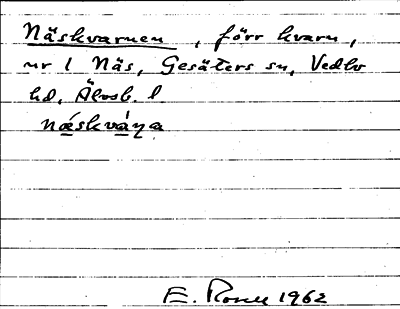 Näskvarnen, förr kvarn,
nr 1 Näs, Gesäters sn, Vedbo
hd, Älvsb. l.
næ̀skvàɳa
E. Rosell 1962